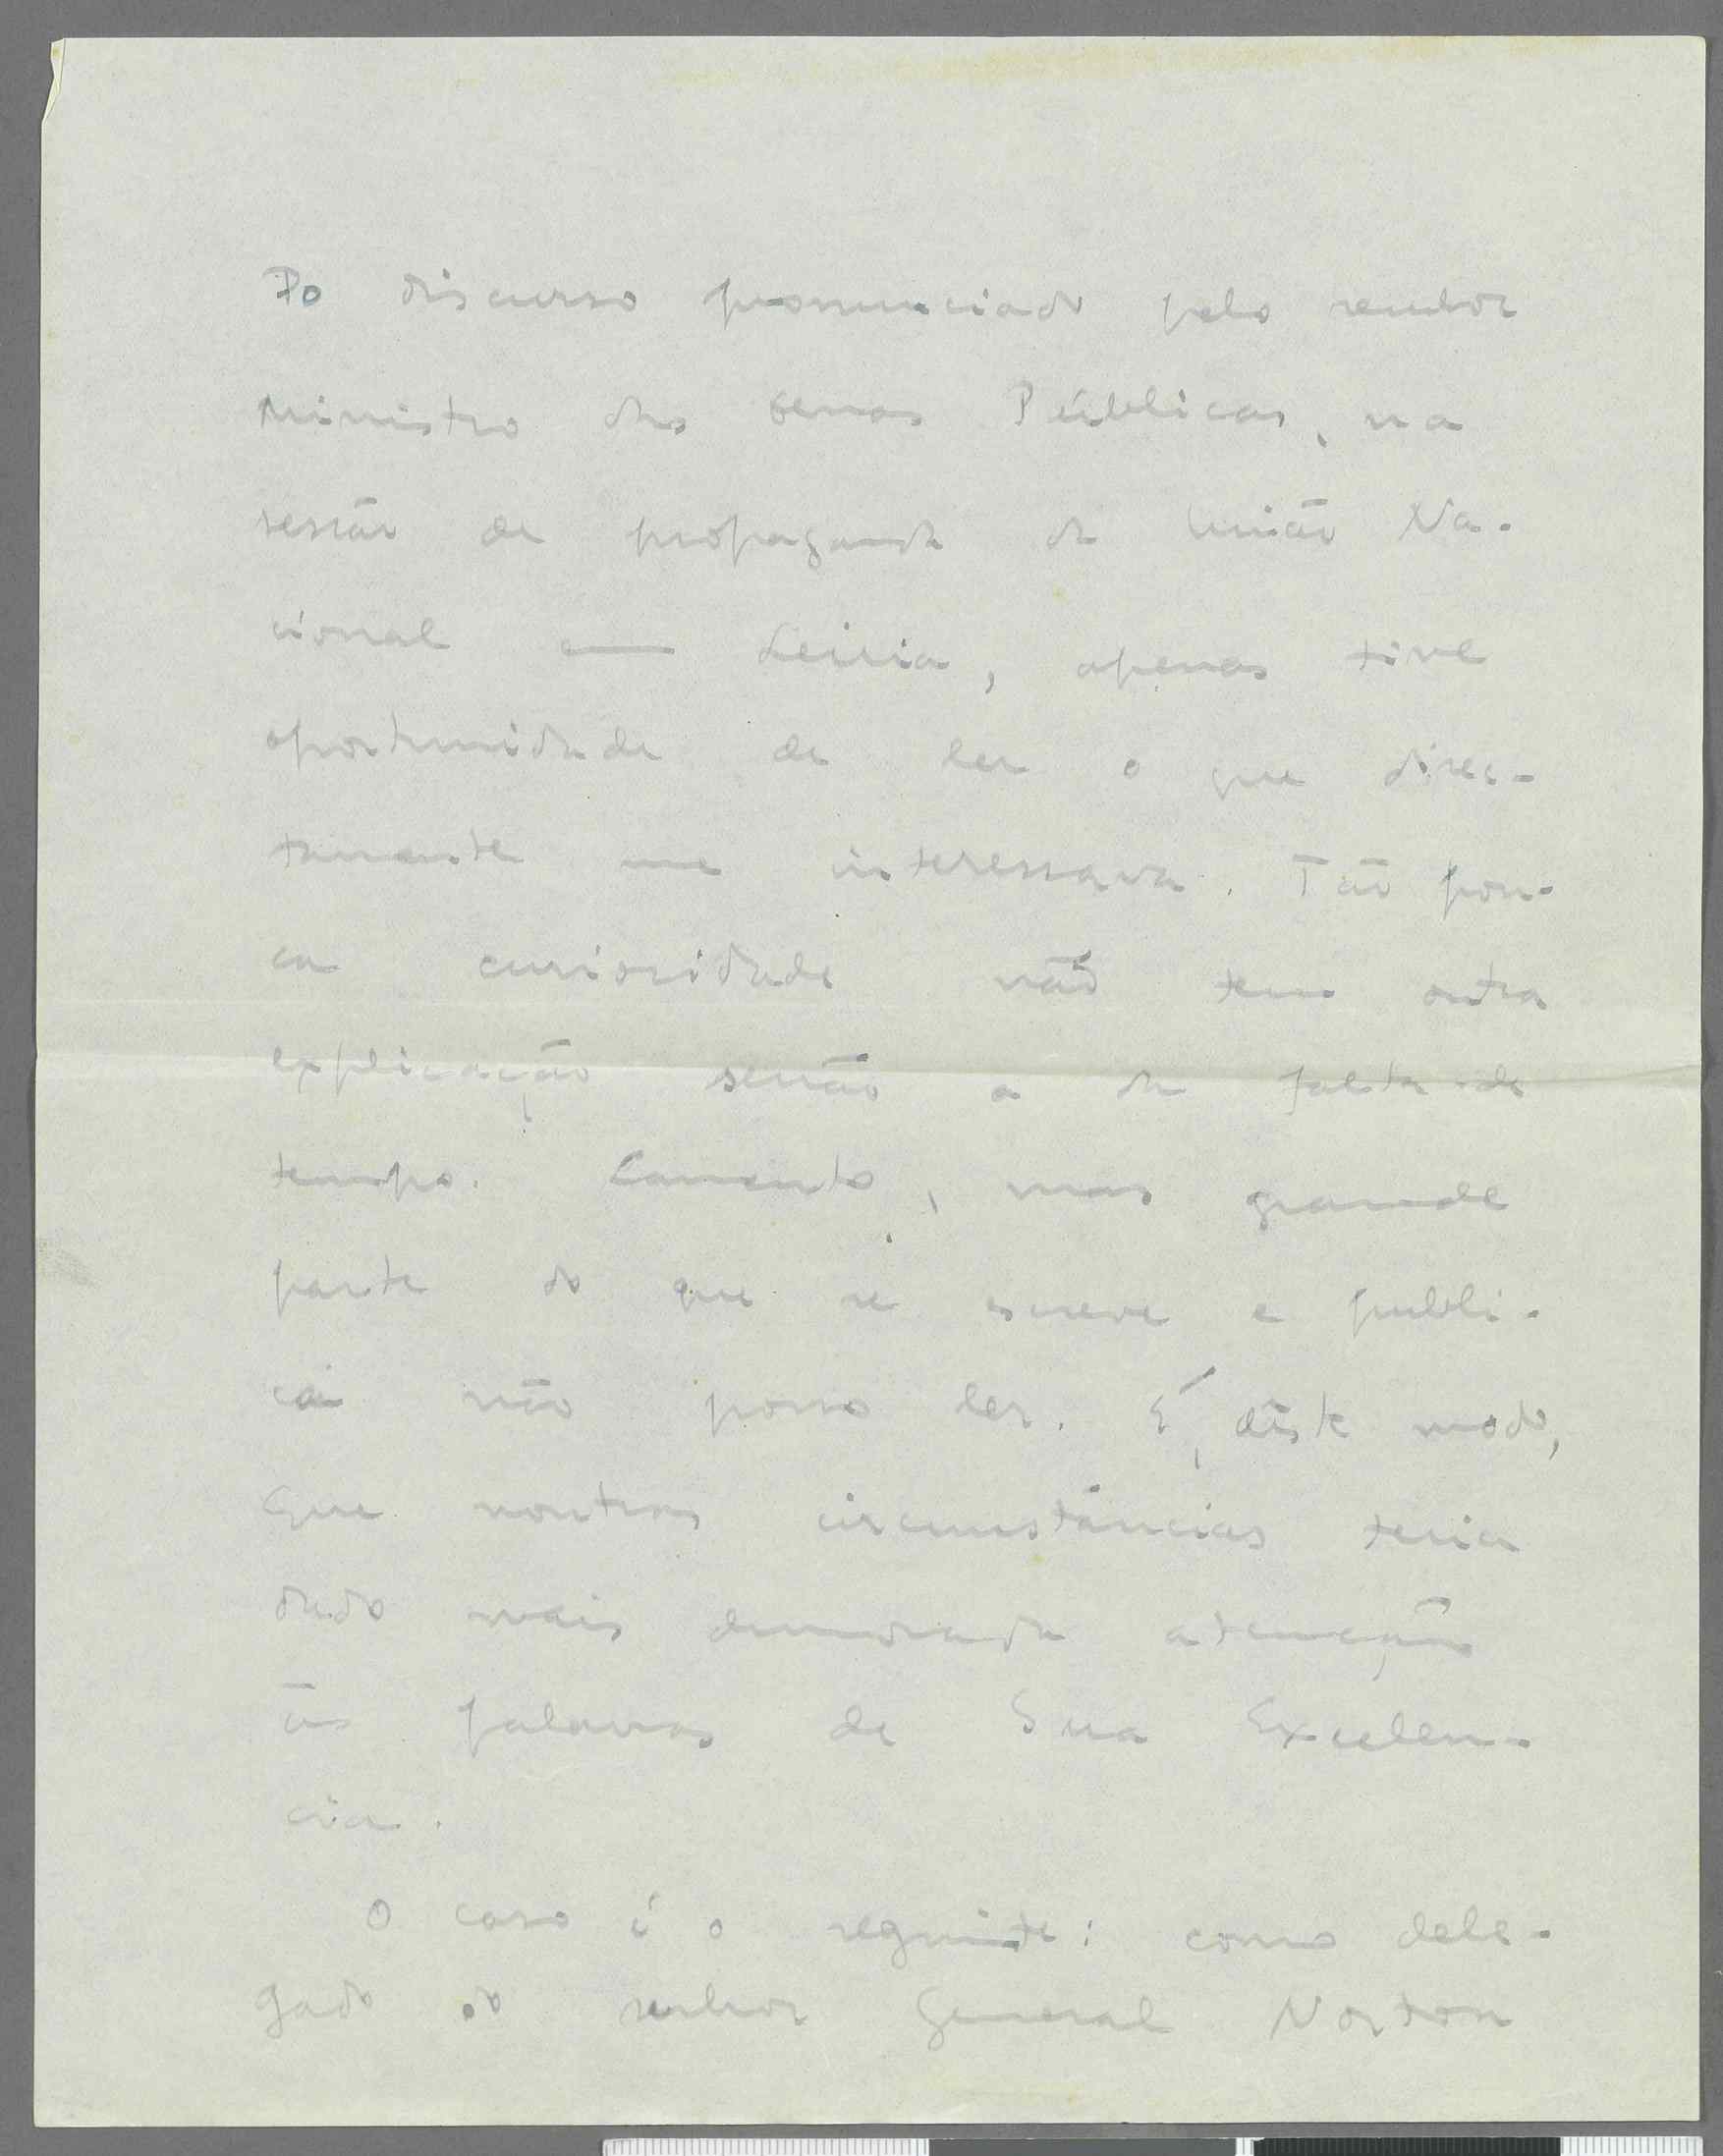 Do discurso pronunciado pelo senhor
Ministro das Obras Públicas, na
sessão de propaganda da União Na-
cional em Leiria, apenas tive
oportunidade de ler o que direc-
tamente me interessava. Tão pou-
ca curiosidade não tem outra
explicação senão a da falta de
tempo. Lamento, mas grande
parte do que se escreve e publi-
ca não posso ler. É, dêste modo,
que noutras circunstâncias teria
dado mais demorada atenção
às palavras de Sua Excelên-
cia.
O caso é o seguinte: como dele-
gado do senhor General Norton